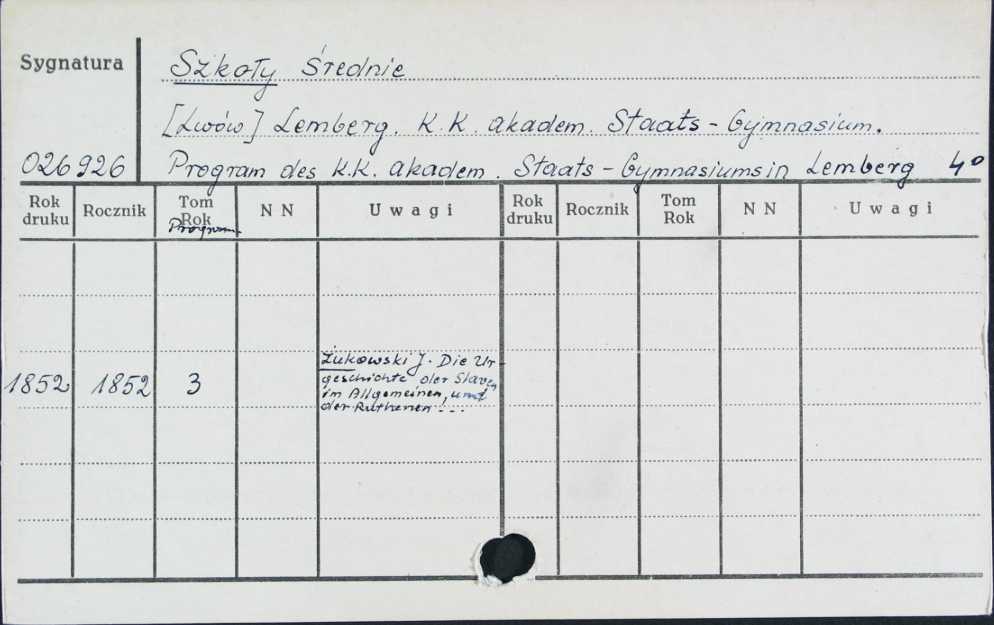 Sygnatura
Szkoły Średnie
[Lwów] Lemberg. K.K. akadem. Staats-Gymnasium.
026926 Program des K.K. akadem. Staats-Gymnasiums in Lemberg 4°
Rok druku Rocznik Tom Rok Program. N N Uwagi Rok druku Rocznik Tom Rok N N Uwagi
1852 1852 3 Żukowski J. Die Ur-
geschichte der Slaven
im Allgemeinen, und
der Ruthenen ...